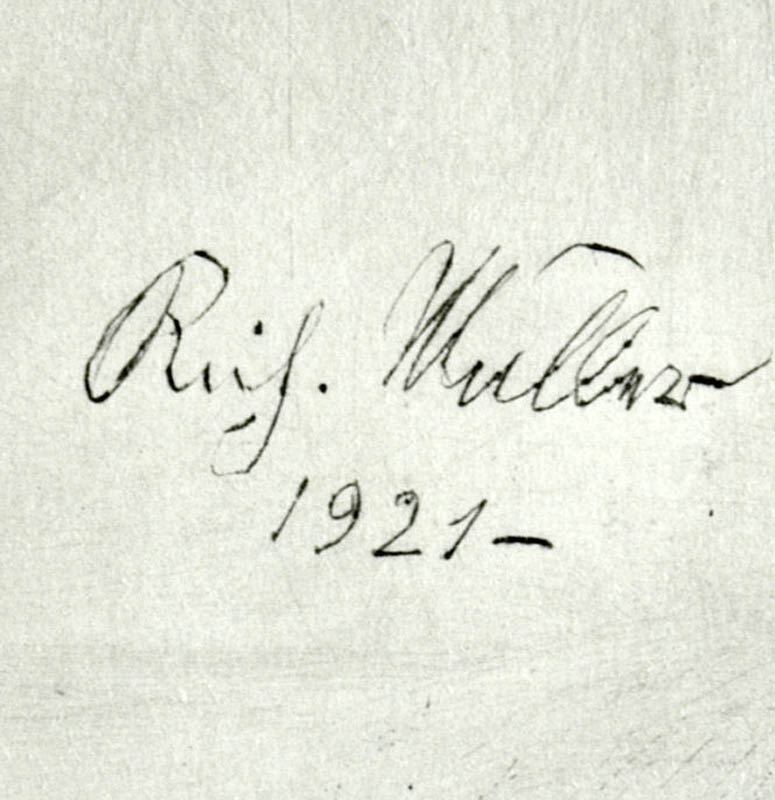 Rich. Müller
1921-